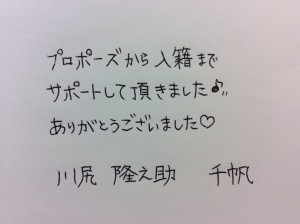 プロポーズから入籍まで
サポートして頂きました♪
ありがとうございました♡
川尻 隆之助 千帆